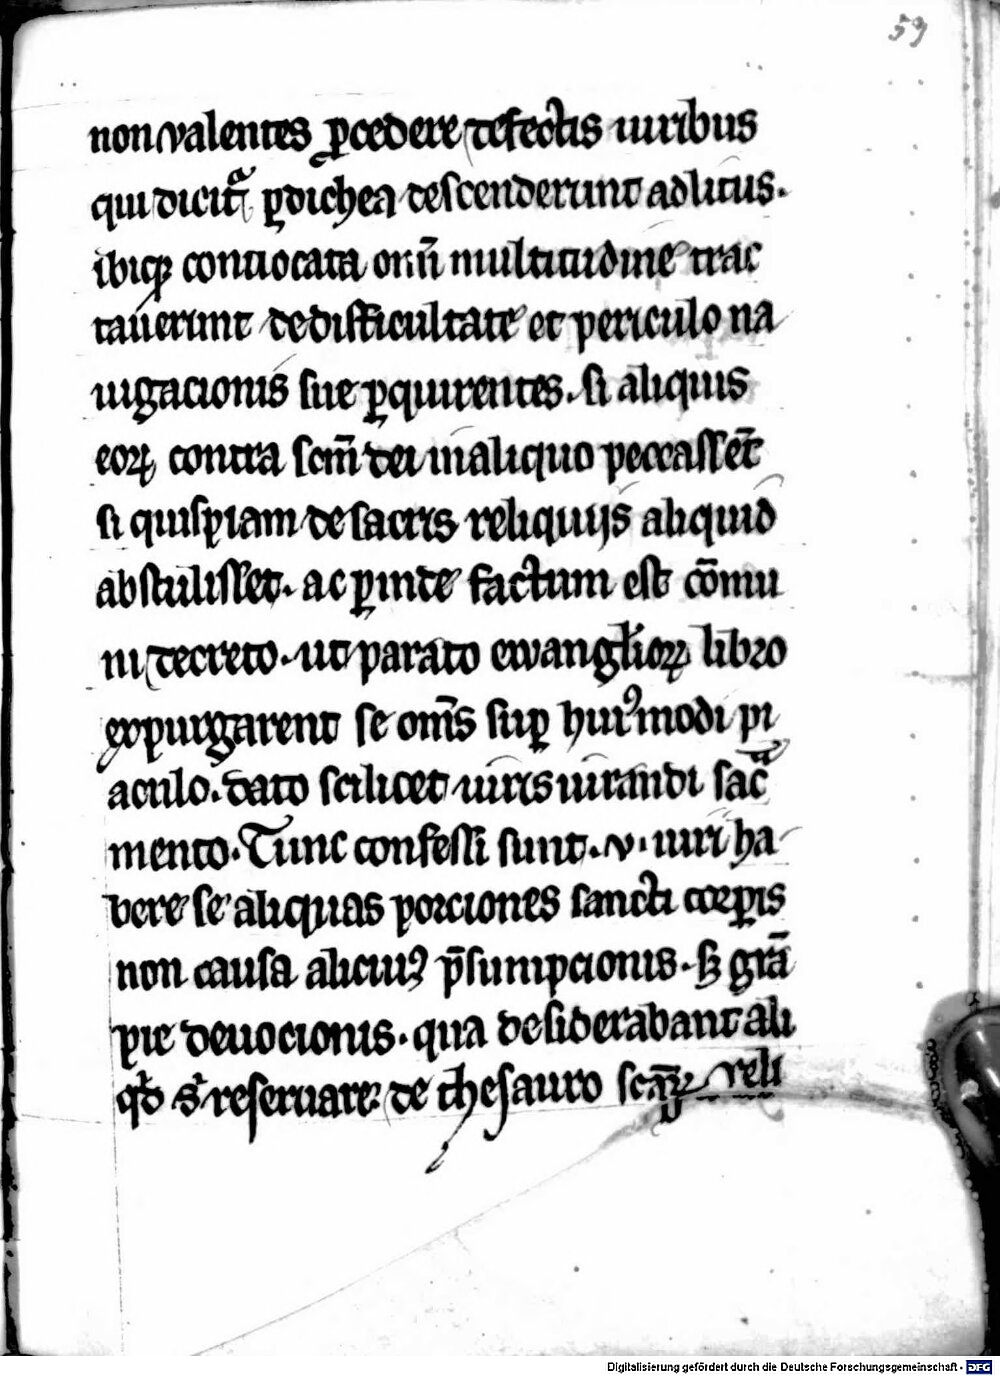 59
non valentes ꝓcedere defectis uiribus
qui dicitᷓ ꝑdichea descenderunt ad litus.
ibiqꝫ conuocata om̄i multitudine trac
tauerunt de difficultate et periculo na
uigacionis sue ꝑquirentes. si aliquis
eoꝝ contra scm̄ dei in aliquo peccasset
si quispiam de sacris reliquijs aliquid
abstulisset. ac ꝓinde factum est cōmu
ni decreto. ut parato ewanglioꝝ libro
expurgarent se om̄s suꝑ huiꝰmodi pi
aculo. dato scilicet iuris iurandi sacᷓ
mento. Tunc confessi sunt .v. uiri ha
bere se aliquas porciones sancti corꝑis
non causa aliciuꝰ p̄sumpcionis. sꝫ grā
pie deuocionis. qua desiderabant ali
qͥd sͥ reseruare de thesauro scaꝝ reli
Digitalisierung gefördert durch die Deutsche Forschungsgemeinschaft - DFG